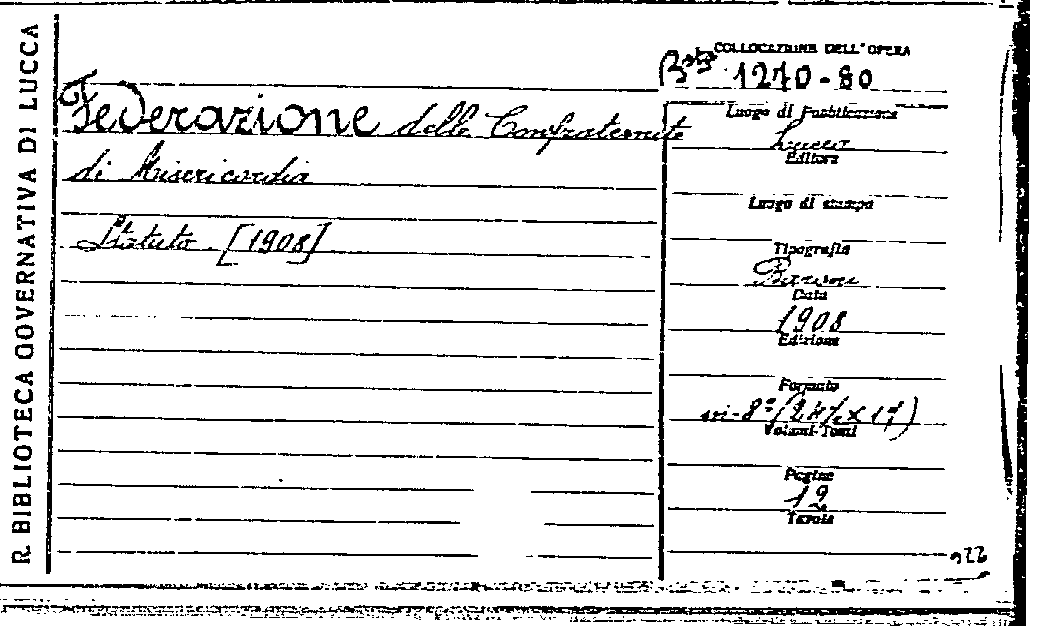 R. BIBLIOTECA GOVERNATIVA DI LUCCA
Federazione delle Confraternite
di Misericordia
Statuto. [1908]
COLLOCAZIONE DELL'OPERA
Bta 1270-80
Luogo di Pubblicazione
Lucca
Editore
Luogo di stampa
Tipografia
Baroni
Data
1908
Edizione
Formato
in-8°
Volumi-Tomi
Pagine
19
Tavole